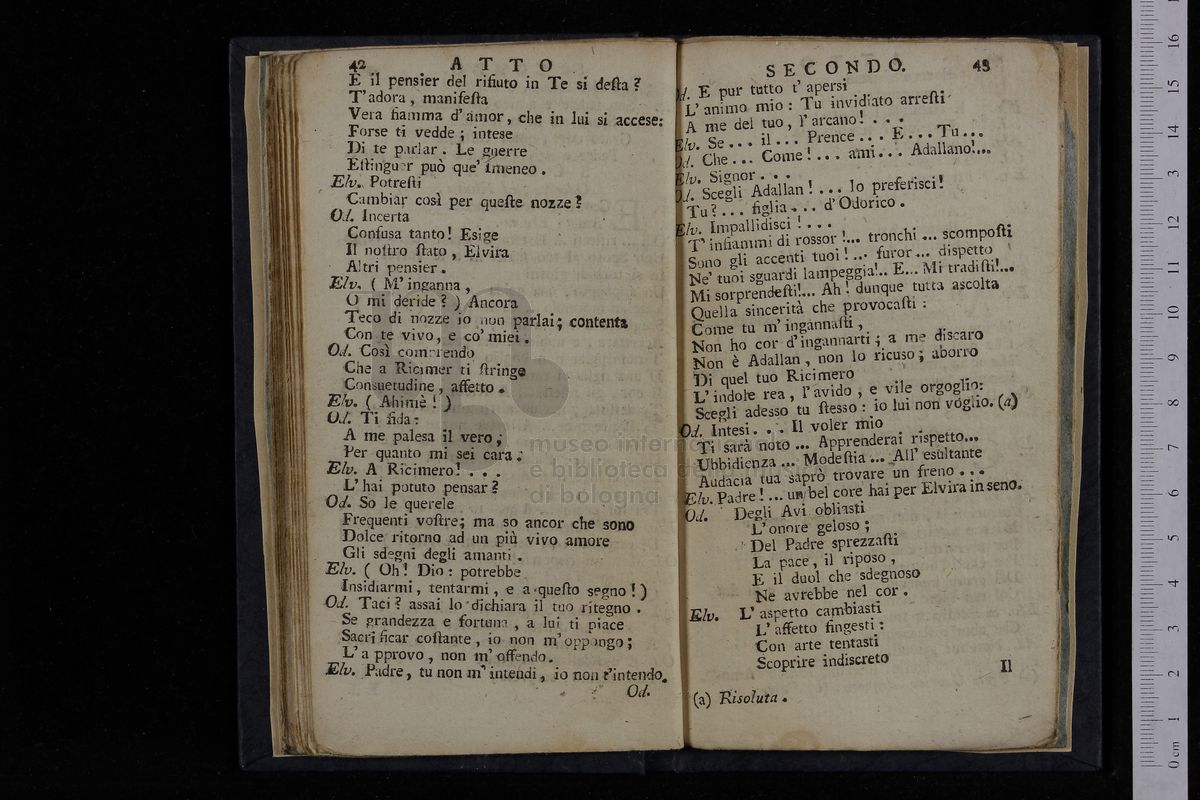 42 ATTO
E il pensier del rifiuto in Te si desta?
T'adora, manifesta
Vera fiamma d'amor, che in lui si accese:
Forse ti vedde; intese
Di te parlar. Le guerre
Estinguer può que' imeneo.
Elv. Potresti
Cambiar così per queste nozze?
Od. Incerta
Confusa tanto! Esige
Il nostro stato, Elvira
Altri pensier.
Elv. (M'inganna,
O mi deride?) Ancora
Teco di nozze io non parlai; contenta
Con te vivo, e co' miei.
Od. Così comprendo
Che a Ricimer ti stringe
Consuetudine, affetto.
Elv. (Ahimè!)
Od. Ti fida:
A me palesa il vero,
Per quanto mi sei cara:
Elv. A Ricimero! . . .
L'hai potuto pensar?
Od. So le querele
Frequenti vostre; ma so ancor che sono
Dolce ritorno ad un più vivo amore
Gli sdegni degli amanti.
Elv. (Oh! Dio: potrebbe
Insidiarmi, tentarmi, e a questo segno!)
Od. Taci? assai lo dichiara il tuo ritegno.
Se grandezza e fortuna, a lui ti piace
Sacrificar costante, io non m'oppongo;
L'approvo, non m'offendo.
Elv. Padre, tu non m'intendi, io non t'intendo.
Od.
SECONDO. 43
Od. E pur tutto t'apersi
L'animo mio: Tu invidiato arresti
A me del tuo, l'arcano! . . .
Elv. Se... il... Prence... E... Tu...
Od. Che... Come!... ami... Adallano!...
Elv. Signor . . .
Od. Scegli Adallan!... Io preferisci!
Tu?... figlia... d'Odorico.
Elv. Impallidisci!...
T'infiammi di rossor!... tronchi... scomposti
Sono gli accenti tuoi!... furor... dispetto
Ne' tuoi sguardi lampeggia!.. E... Mi tradisti!...
Mi sorprendesti!... Ah! dunque tutta ascolta
Quella sincerità che provocasti:
Come tu m'ingannasti,
Non ho cor d'ingannarti; a me discaro
Non è Adallan, non lo ricuso; aborro
Di quel tuo Ricimero
L'indole rea, l'avido, e vile orgoglio:
Scegli adesso tu stesso: io lui non voglio. (a)
Od. Intesi... Il voler mio
Ti sarà noto... Apprenderai rispetto...
Ubbidienza... Modestia... All'esultante
Audacia tua saprò trovare un freno...
Elv. Padre!... un bel core hai per Elvira in seno.
Od. Degli Avi obliasti
L'onore geloso;
Del Padre sprezzasti
La pace, il riposo,
E il duol che sdegnoso
Ne avrebbe nel cor.
Elv. L'aspetto cambiasti
L'affetto fingesti:
Con arte tentasti
Scoprire indiscreto
Il
(a) Risoluta.
museo internazionale
e biblioteca della musica
di bologna
0 cm 1 2 3 4 5 6 7 8 9 10 11 12 13 14 15 16